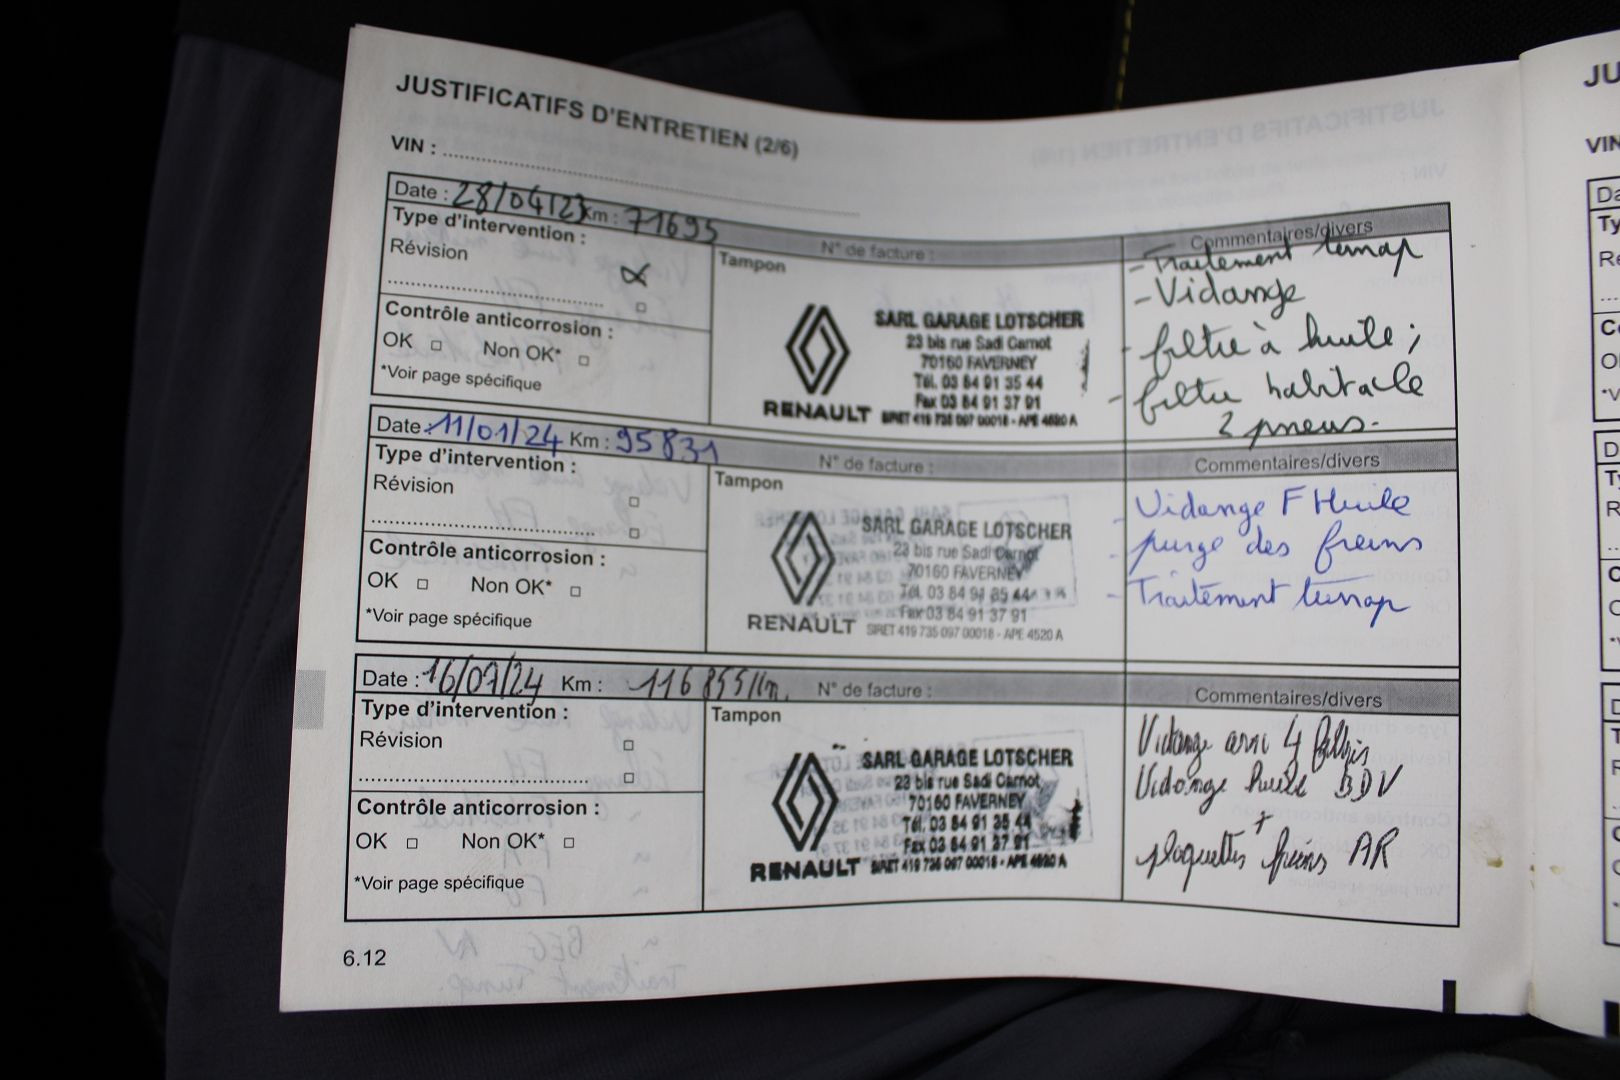 JUSTIFICATIFS D'ENTRETIEN (2/6)
VIN :
Date : 28/04/23 Km : 71695 N° de facture : Commentaires/divers
Type d'intervention :
Révision
Contrôle anticorrosion :
OK Non OK*
*Voir page spécifique
Tampon
SARL GARAGE LOTSCHER
23 bis rue Sadi Carnot
70160 FAVERNEY
Tél. 03 84 91 35 44
Fax 03 84 91 37 91
RENAULT SIRET 419 735 097 00018 - APE 4520 A
- Traitement
- Vidange
- filtre à huile ;
- filtre habitacle
2 pneus.
Date : 11/01/24 Km : 95831 N° de facture : Commentaires/divers
Type d'intervention :
Révision
Contrôle anticorrosion :
OK Non OK*
*Voir page spécifique
Tampon
SARL GARAGE LOTSCHER
23 bis rue Sadi Carnot
70160 FAVERNEY
Tél. 03 84 91 35 44
Fax 03 84 91 37 91
RENAULT SIRET 419 735 097 00018 - APE 4520 A
- Vidange F Huile
- purge des freins
- Traitement
Date : 16/07/24 Km : 116855 N° de facture : Commentaires/divers
Type d'intervention :
Révision
Contrôle anticorrosion :
OK Non OK*
*Voir page spécifique
Tampon
SARL GARAGE LOTSCHER
23 bis rue Sadi Carnot
70160 FAVERNEY
Tél. 03 84 91 35 44
Fax 03 84 91 37 91
RENAULT SIRET 419 735 097 00018 - APE 4520 A
Vidange 4
Vidange huile BDV
+
plaquettes freins AR
6.12
JU
VIN